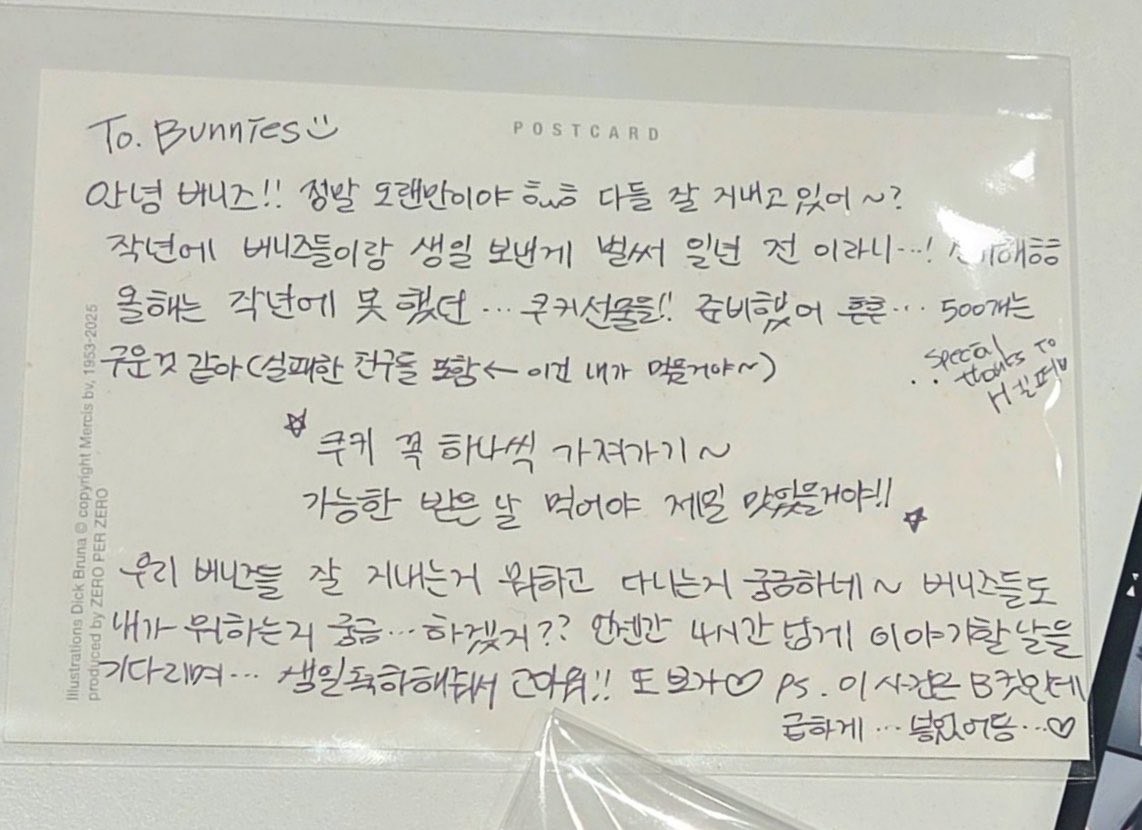 To. Bunnies
POSTCARD
안녕 버니즈!! 정말 오랜만이야 ㅎㅅㅎ 다들 잘 지내고 있어~?
작년에 버니즈들이랑 생일 보낸게 벌써 일년 전 이라니...!
올해는 작년에 못 했던... 쿠키선물을!! 준비했어 흔흔... 500개는
구운것 같아 (실패한 친구들 포함 ← 이건 내가 먹을거야~)
.. special
thanks to
쿠키 꼭 하나씩 가져가기~
가능한 받은 날 먹어야 제일 맛있을거야!!
우리 버니즈들 잘 지내는거 뭐하고 다니는지 궁금하네~ 버니즈들도
내가 뭐하는지 궁금...하겠지?? 언젠간 4시간 넘게 이야기할 날을
기다리며... 생일축하해줘서 고마워!! 또 보자♡ PS. 이 사진은 B컷인데
급하게... 넣었어둥...♡
Illustrations Dick Bruna © copyright Mercis bv, 1953-2025
produced by ZERO PER ZERO